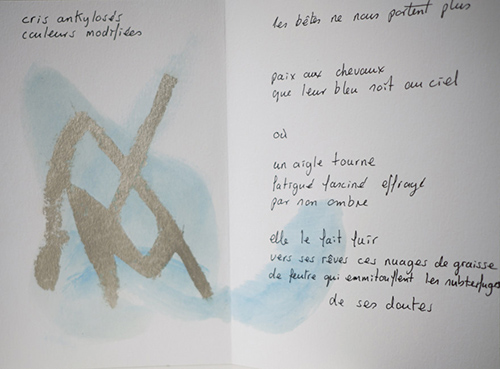 cris ankylosés
couleurs modifiées
les bêtes ne nous portent plus
paix aux chevaux
que leur bleu soit au ciel
où
un aigle tourne
fatigué fasciné effrayé
par son ombre
elle le fait fuir
vers ses rêves ces nuages de graisse
de feutre qui emmitouflent les subterfuges
de ses doutes